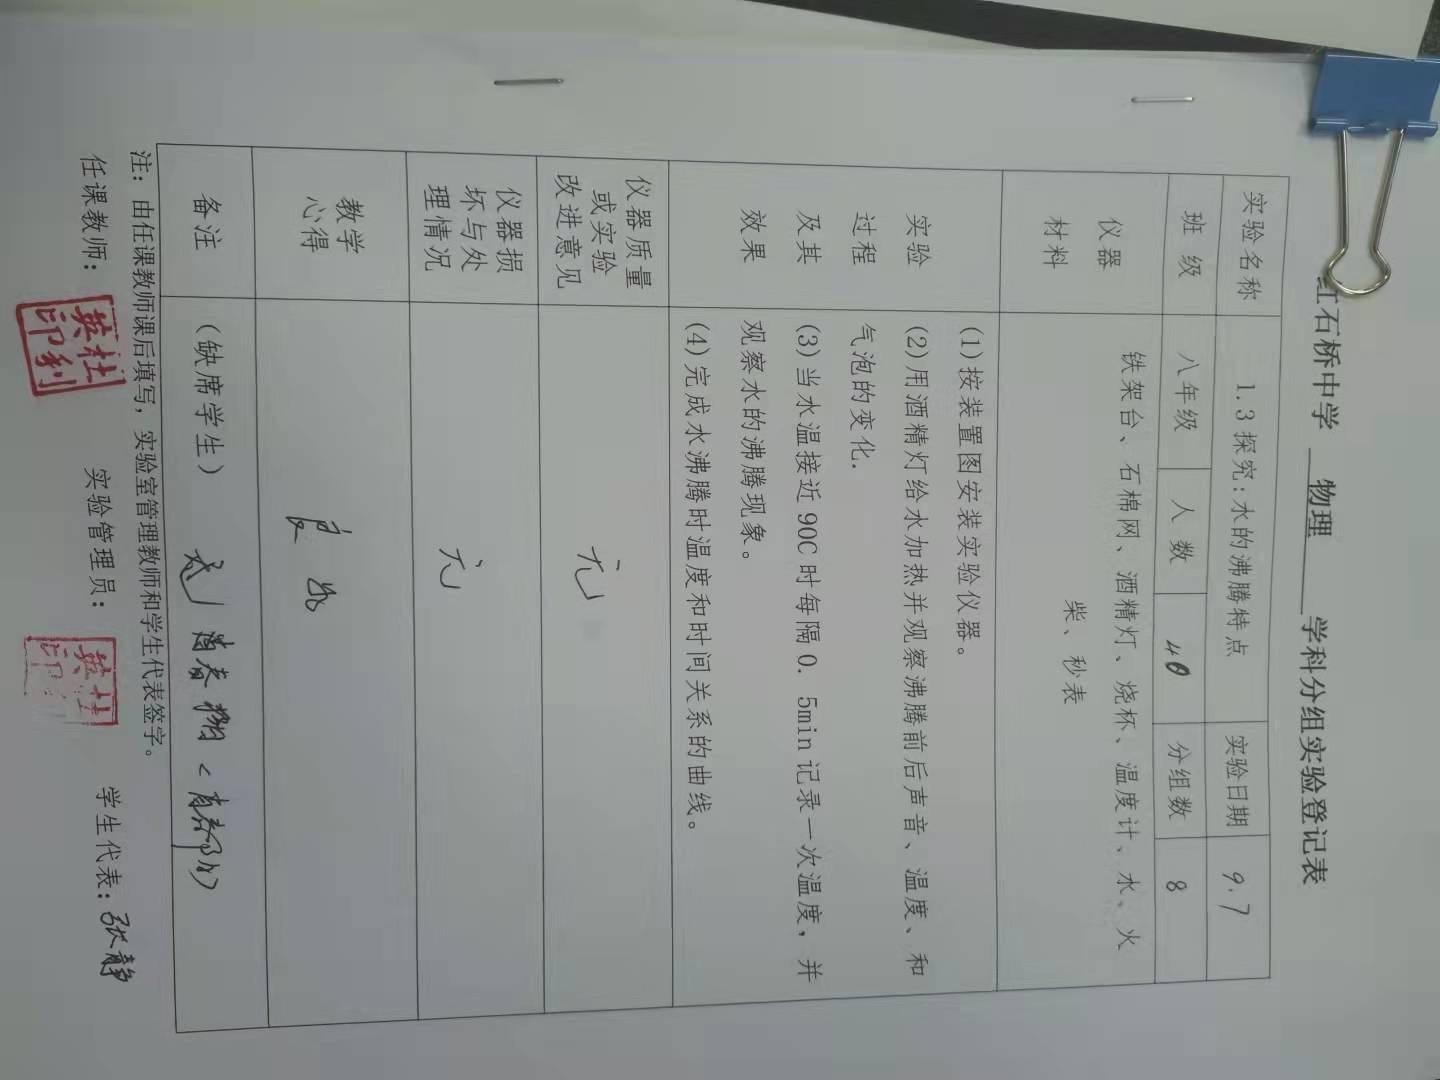 红石桥中学 物理 学科分组实验登记表
实验名称 1.3探究:水的沸腾特点 实验日期 9.7
班级 八年级 人数 40 分组数 8
仪器
材料
铁架台、石棉网、酒精灯、烧杯、温度计、水、火
柴、秒表
实验
过程
及其
效果
(1)按装置图安装实验仪器。
(2)用酒精灯给水加热并观察沸腾前后声音、温度、和
气泡的变化.
(3)当水温接近90C时每隔0.5min记录一次温度，并
观察水的沸腾现象。
(4)完成水沸腾时温度和时间关系的曲线。
仪器质量
或实验
改进意见
无
仪器损
坏与处
理情况
无
教学
心得
良好
备注
(缺席学生)
注：由任课教师课后填写，实验室管理教师和学生代表签字。
任课教师： 杜英利印 实验管理员： 学生代表：张静